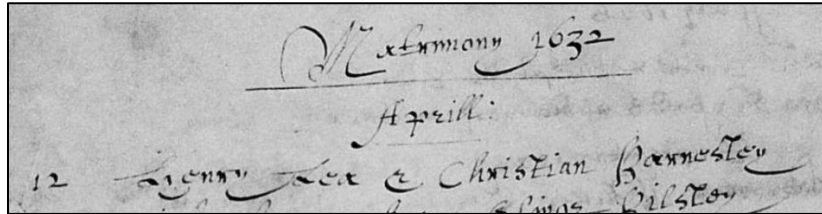 Matrimony 1632
Aprill:
12 Henry Lea & Christian Barnesley